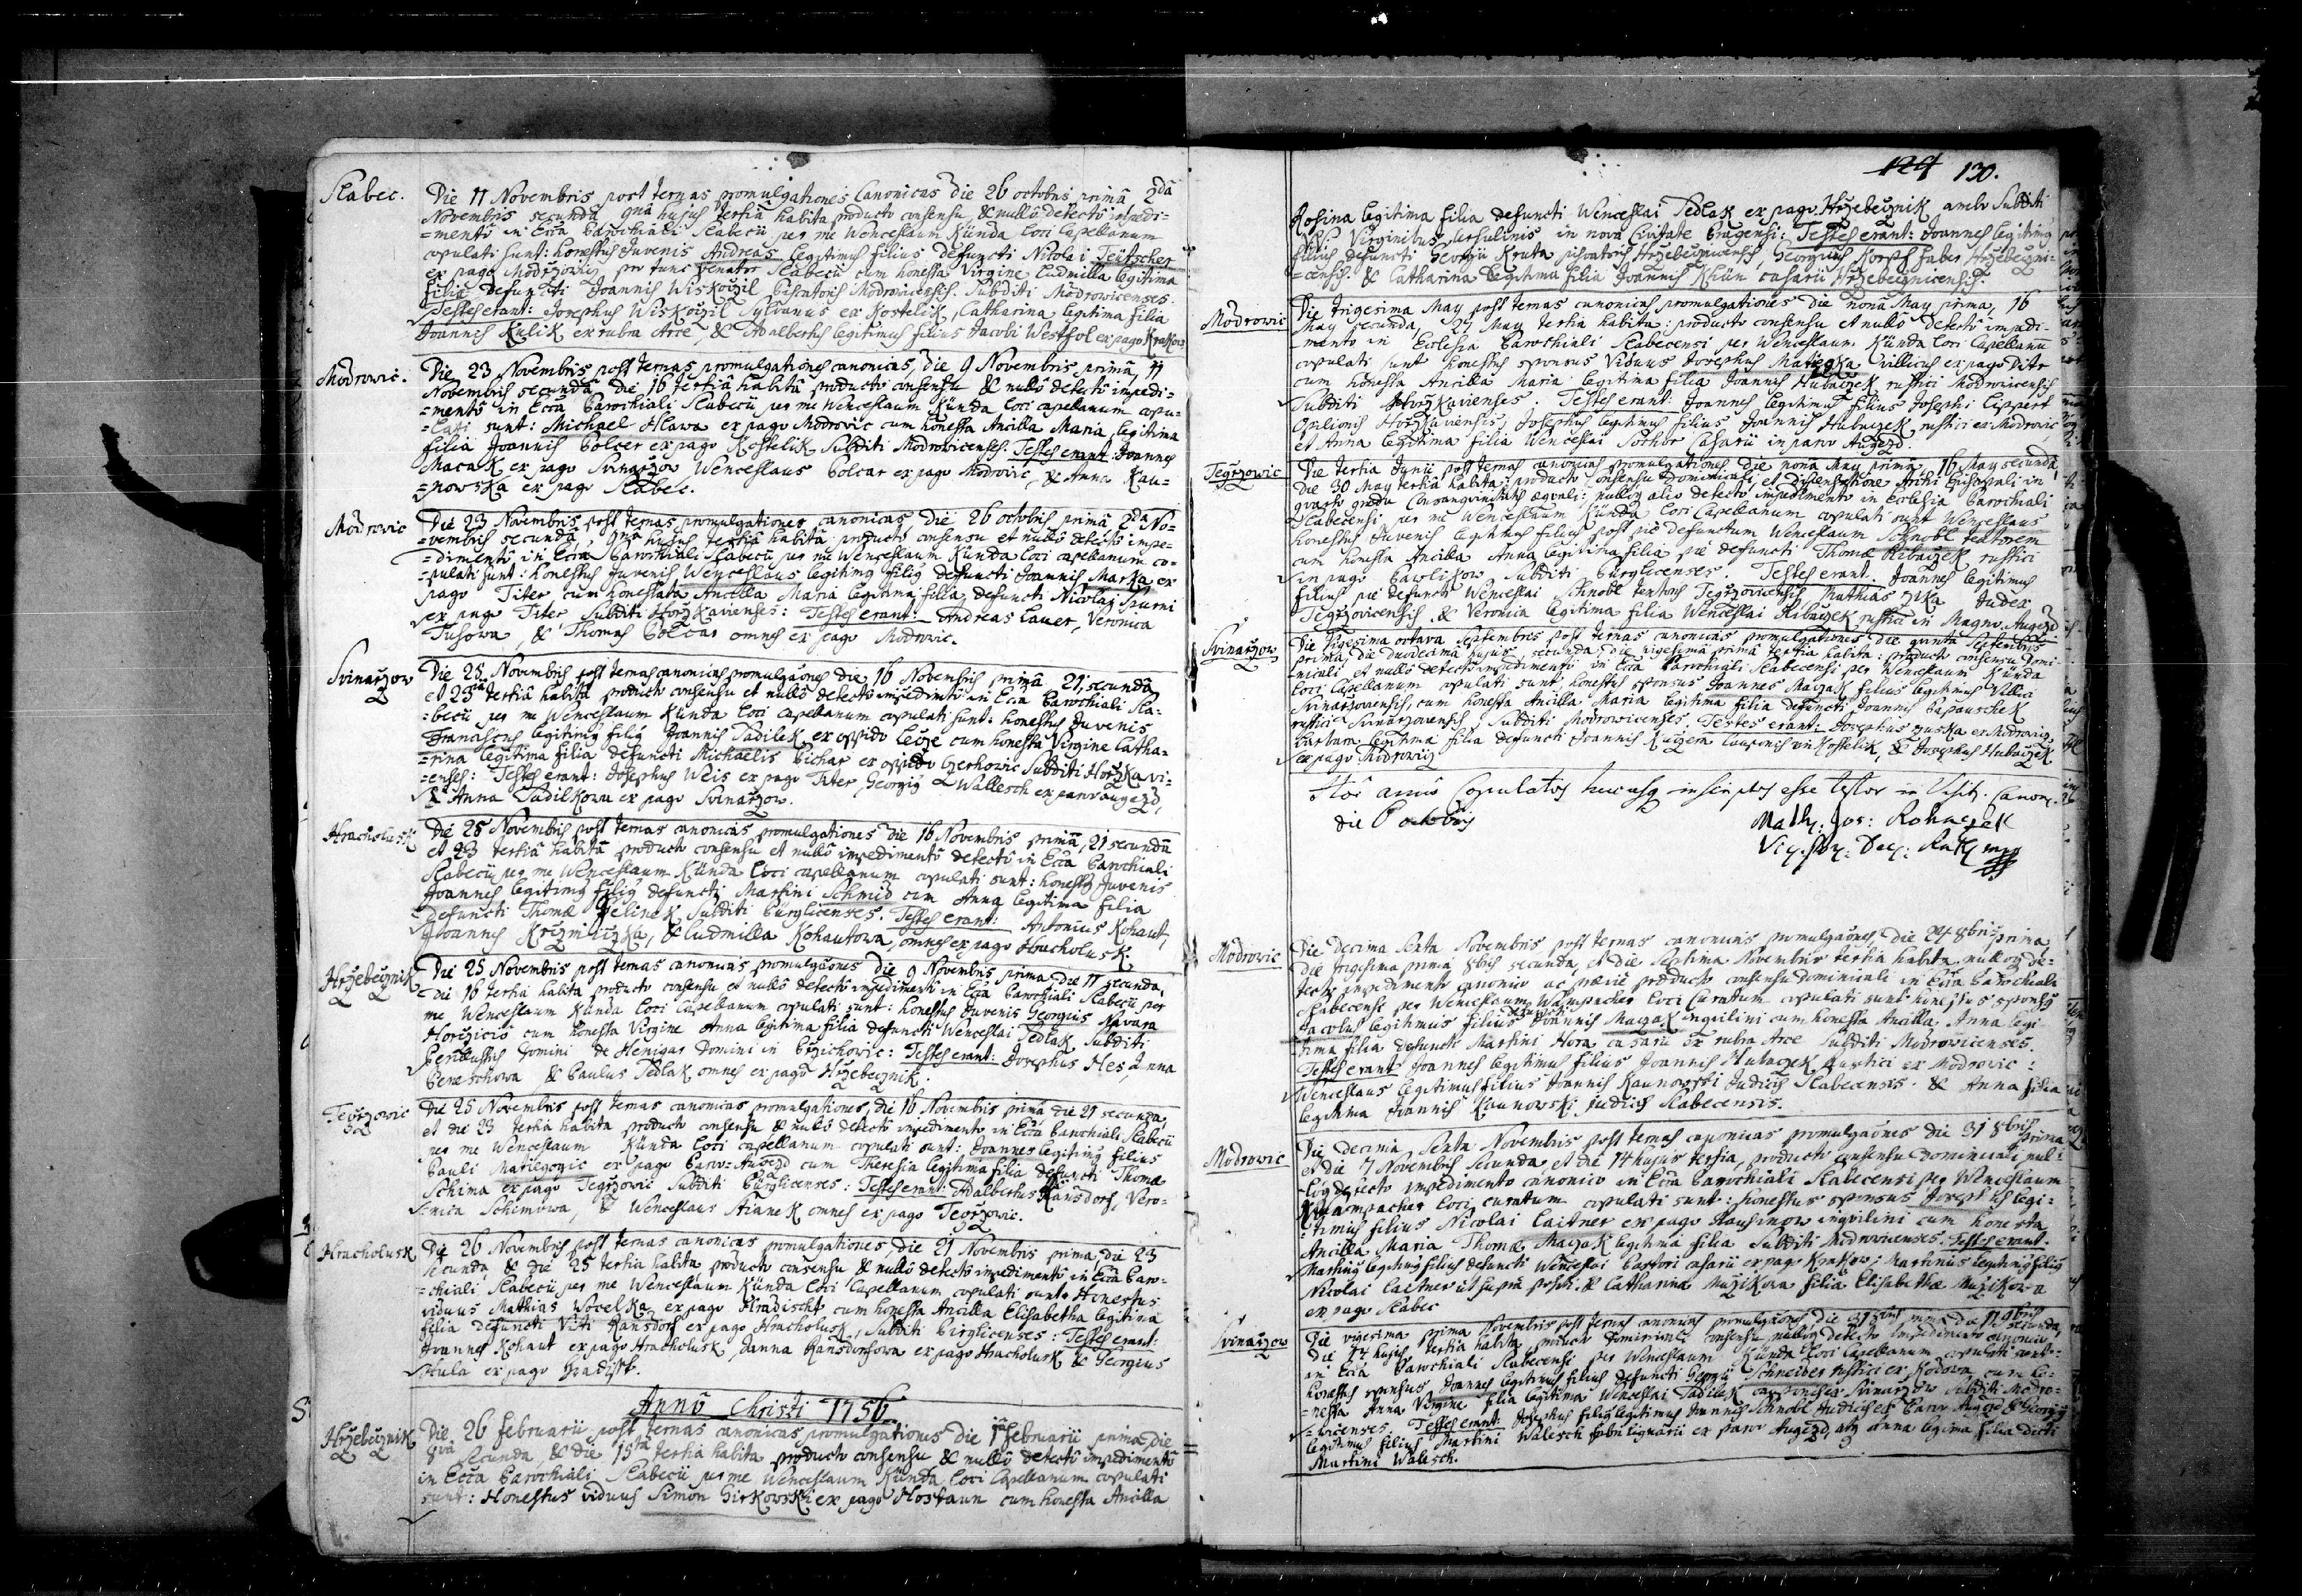 Slabec.
Die 11 Novembris post ternas promulgationes Canonicas die 26 octobris primâ, 2dâ
Novembris secundâ, 9nâ hujus tertiâ habita producto consensu, & nullô detectô impedi-
=mentô in Eccâ Parochiali Slabecii per me Wenceslaum Künda loci Capellanum
copulati sunt: honestus Juvenis Andreas legitimus filius defuncti Nicolai Teütscher
ex pago Modrzowicz pro tunc venator Slabecii cum honesta Virgine Ludmilla legitima
filia defuncti Joannis Wiskoczil piscatoris Modrowicensis. Subditi Modrowicenses.
Testes erant: Josephus Wiskoczil Sylvanus ex Kostelik, Catharina legitima filia
Joannis Kulik ex rubra Arce, & Adalbertus legitimus filius Jacobi Westfol ex pago Krakow
Modrowic.
Die 23 Novembris post ternas promulgationes canonicas, die 9 Novembris prima, 11
Novembris secundâ die 16 tertiâ habitâ productô consensu & nullô detectô impedi=
=mentô in Eccâ Parochiali Slabecii per me Wenceslaum Künda loci capellanum copu=
=lati sunt: Michael Hlawa ex pago Modrowic cum honesta Ancilla Maria, legitima
filia Joannis Polcer ex pago Kostelik Subditi Modrowicenses: Testes erant: Joannes
Macak ex pago Svinarzow Wenceslaus Polcar ex pago Modrovic, & Anna Kau=
=nowska ex pago Slabec.
Modrovic
Die 23 Novembris post ternas promulgationes canonicas, die 26 octobris primâ 2da No=
=vembris secundâ, 9nâ hujus tertiâ habita productô consensu et nullô detectô impe=
=dimentô in Eccâ Parochiali Slabecii per me Wenceslaum Künda loci capellanum co=
=pulati sunt: honestus Juvenis Wenceslaus legitimg filig defuncti Joannis Marka ex
pago Titer cum honestata Ancilla Maria legitima filia defuncti Nicolai Szurni
ex pago Titer Subditi Horzkavienses: Testes erant: Andreas Lauer, Veronica
Tusowa, & Thomas Polcar omnes ex pago Modrovic.
Svinarzow
Die 25 Novembris post ternas canonicas promulgaones die 16 Novembris primâ 21, secundâ
et 23 tertiâ habita producto consensu et nullô detectô impedimtô in Eccâ Parochiali Sla=
=becii per me Wenceslaum Künda loci capellanum copulati sunt: honestus Juvenis
Franciscus legitimg filig Joannis Tadilek ex oppido Leoze cum honesta Virgine Catha=
=rina legitima filia defuncti Michaelis Pichar ex oppido Czerhowic Subditi Horzkavi=
=enses: Testes erant: Josephus Weis ex pago Titer, Georgig Wallesch ex parv augezd,
& Anna Tadilkowa ex pago Svinarzow.
Hracholusk
Die 25 Novembris post ternas canonicas promulgationes die 16 Novembris primâ, 21 secundâ
et 23 tertiâ habitâ producto consensu et nullô impedimentô detectô in Eccâ Parochiali
Slabecii per me Wenceslaum Künda loci capellanum copulati sunt: honestg Juvenis
Joannes legitimg filig defuncti Martini Schmid cum Anna legitima filia
defuncti Thomæ Jelinek Subditi Bürglicenses. Testes erant: Antonius Kohaut,
Joannes Krzniczka, & Ludmilla Kohautowa, omnes ex pago Hracholusk.
Hrzebecznik
Die 25 Novembris post ternas canonicas promulgaones die 9 Novembris prima, die 11 secunda,
die 16 tertia habita producto consensu et nullô detectô impedimentô in Eccâ Parochiali Slabecii per
me Wenceslaum Künda loci Capellanum copulati sunt: honestus Juvenis Georgius Navara
Horzicio cum honesta Virgine Anna legitima filia defuncti Wenceslai Sedlak Subditi
Perillustris Domini de Henigar Domini in Czichowic: Testes erant: Josephus Hes, Anna
Pereschowa & Paulus Sedlak omnes ex pago Hrzebecznik.
Tegrzowic
Die 25 Novembris post ternas canonicas promulgationes, die 16 Novembris primâ die 21 secunda,
et die 23 tertia habita producto consensu & nullô detectô impedimento in Eccâ Parochiali Slabecii
per me Wenceslaum Künda loci capellanum copulati sunt: Joannes legitimg filius
Pauli Matiegovic ex pago Parv: Augezd cum Theresia legitima filia defuncti Thomæ
Schima ex pago Tegrzovic Subditi Bürglicenses: Testes erant: Adalbertus Ransdorf, Vero=
=nica Schimowa, & Wenceslaus Stanek omnes ex pago Tegrzowic.
Hracholusk
Die 26 Novembris post ternas canonicas promulgationes, die 21 Novembris prima, die 23
secunda & die 25 tertia habita producto consensu & nullô detectô impedimentô in Eccâ Paro=
=chiali Slabecii per me Wenceslaum Künda loci Capellanum copulati sunt Honestus
viduus Mathias Wocelka ex pago Hradischt cum honesta Ancilla Elisabetha legitima
filia defuncti Viti Ransdorf ex pago Hracholusk, Subditi Birglicenses: Testes erant:
Joannes Kohaut ex pago Hracholusk, Janna Ransdorfowa ex pago Hracholusk & Georgius
Hula ex pago Hradischt.
Annô Christi 1756
Hrzebecznik
Die 26 februarii post ternas canonicas promulgationes die 1 februarii prima, die
8va secunda, & die 15ta tertia habita producto consensu & nullô detectô impedimentô
in Eccâ Parochiali Slabecii per me Wenceslaum Künda loci Capellanum copulati
sunt: Honestus viduus Simon Girkowski ex pago Hostaun cum honesta Ancilla
129 130.
Rosina legitima filia defuncti Wenceslai Sedlak ex pago Hrzebecznik ambo Subditi
Virginibus Ursulinis in nova Civitate Pragensi: Testes erant: Joannes legitimg
filius defuncti Georgii Kruta piscatoris Hrzebecznicensis, Georgius Korpf faber Hrzebeczni=
=censis & Catharina legitima filia Joannis Khün casarii Hrzebecznicensis.
Modrowic
Die trigesima May post ternas canonicas promulgationes die nonâ May prima, 16
May secunda, 27 May tertia habita: producto consensu et nullô detectô impedi-
mento in Ecclesia Parochiali Slabecensi per Wenceslaum Künda loci Capellanū
copulati sunt honestus sponsus Viduus Josephus Matczka villicus ex pago Titr
cum honesta Ancilla Maria legitima filia Joannis Hubaczek rustici Modrovicensis
Subditi Horzkavienses. Testes erant: Joannes legitimus filius Josephi Lippert
Opilionis Horzkaviensis, Josephus legitimus filius Joannis Hubaczek rustici ex Modrovic,
et Anna legitima filia Wenceslai Sochor Casarii in parv Augezd.
Tegrzowic
Die tertia Junii post ternas canonicas promulgationes die nonâ May primâ, 16 May secundâ
die 30 May tertiâ habita: producto Consensu Dominicali, et Dispensatione Archi Episcopali in
quarto gradu Consangvinitatis æqvali: nulloq alio detecto impedimento in Ecclesia Parochiali
Slabecensi per me Wenceslaum Künda loci Capellanum copulati sunt Wenceslaus
honestus Juvenis legitimus filius post pie defunctum Wenceslaum Schnobl textorem
cum honesta Ancilla Anna legitima filia pie defuncti Thomæ Ribaczek rustici
in pago Pavlikow Subditi Bürglicenses. Testes erant. Joannes legitimus
filius pie defuncti Wenceslai Schnobl textoris Tegrzovicensis Mathias Zika Judex
Tegrzovicensis & Veronica legitima filia Wenceslai Ribaczek rustici in Magno Augezd.
Svinarzow
Die Vigesima octava Septembris post ternas canonicas promulgationes die quinta Septembris
prima, die duodecima hujus, secunda, die vigesimâ primâ tertia habita: producto consensu Domi-
nicali et nullô detectô impedimentô in Eccâ Parochiali Slabecensi per Wenceslaum Künda
loci Capellanum copulati sunt honestus sponsus Joannes Maczak filius legitimus Villici
Svinarzovensis, cum honesta Ancilla Maria legitima filia defuncti Joannis Papauschek
rustici Svinarzovensis, Subditi Modrowicenses. Testes erant: Josephus Zuska ex Modrovic,
Barbara legitima filia defuncti Joannis Kuczera Cauponis in Kostelik, & Josephus Hubaczek
ex pago Modrowicz
Hoc annô Copulatos hucusq inscriptos esse testor in Visit. Canon.
die 6 octobris
Math: Jos: Rohaczek
Vic. for: Dec: Rak mpp
Modrowic
Die decima Sexta Novembris post ternas canonicas promulgaones, die 24 8bris prima,
die trigesima prima 8bris secunda, et die Septima Novembris tertia habita nulloq de=
tecto impedimento canonico ac prævie producto consensu dominicali in Eccâ Parochiali
Slabecensi per Wenceslaum Wampacher loci Curatum copulati sunt honestus sponsg
Jacobus legitimus filius defuncti Joannis Maczak inquilini cum honesta Ancilla Anna legi=
tima filia defuncti Martini Hora casarii ex rubra Arce Subditi Modrowicenses.
Testes erant Joannes legitimus filius Joannis Hubaczek Rustici ex Modrowic:
Wenceslaus legitimus filius Joannis Kaunowski Judicis Slabecensis & Anna filia
legitima Joannis Kaunowski judicis Slabecensis.
Modrowic
Die decima Sexta Novembris post ternas canonicas promulgaones die 31 8bris prima
et die 7 Novembris Secunda et die 14 hujus tertia, producto consensu Dominicali nul=
loq detecto impedimento canonico in Eccâ Parochiali Slabecensi per Wenceslaum
Wampacher loci curatum copulati sunt: honestus sponsus Josephus legi=
timus filius Nicolai Laitner ex pago Rausinow inquilini cum honesta
Ancilla Maria Thomæ Maczak legitima filia Subditi Modrovicenses. Testes erant.
Martinus legitimg filius defuncti Wenceslai Partori casarii ex pago Krakow: Martinus legitimg filig
Nicolai Laitner ut supra posit. & Catharina Muzikova filia Elisabethæ Muzikova
ex pago Slabec
Svinarzow
Die vigesima prima Novembris post ternas canonicas promulgaones, die 31 8bris prima die 11 9bris secunda
die 14 hujus tertia habita, producto dominicali consensu nulloq detecto impedimento canonico
in Eccâ Parochiali Slabecensi per Wenceslaum Künda loci Capellanum copulati sunt:
honestus sponsus Joannes legitimus filius defuncti Georgii Schneider rustici ex Kodowa cum ho=
=nesta Anna Virgine filia legitima Wenceslai Tadilek cauponis ex Svinarzow Subditi Modro=
=vicenses. Testes erant: Josephus filig legitimus Joannis Schnobl Judicis ex Parv Augezd & Georgig
legitimus filius Martini Walesch fabri lignarii ex parv Augezd, atq Anna legima filia dicti
Martini Walesch.